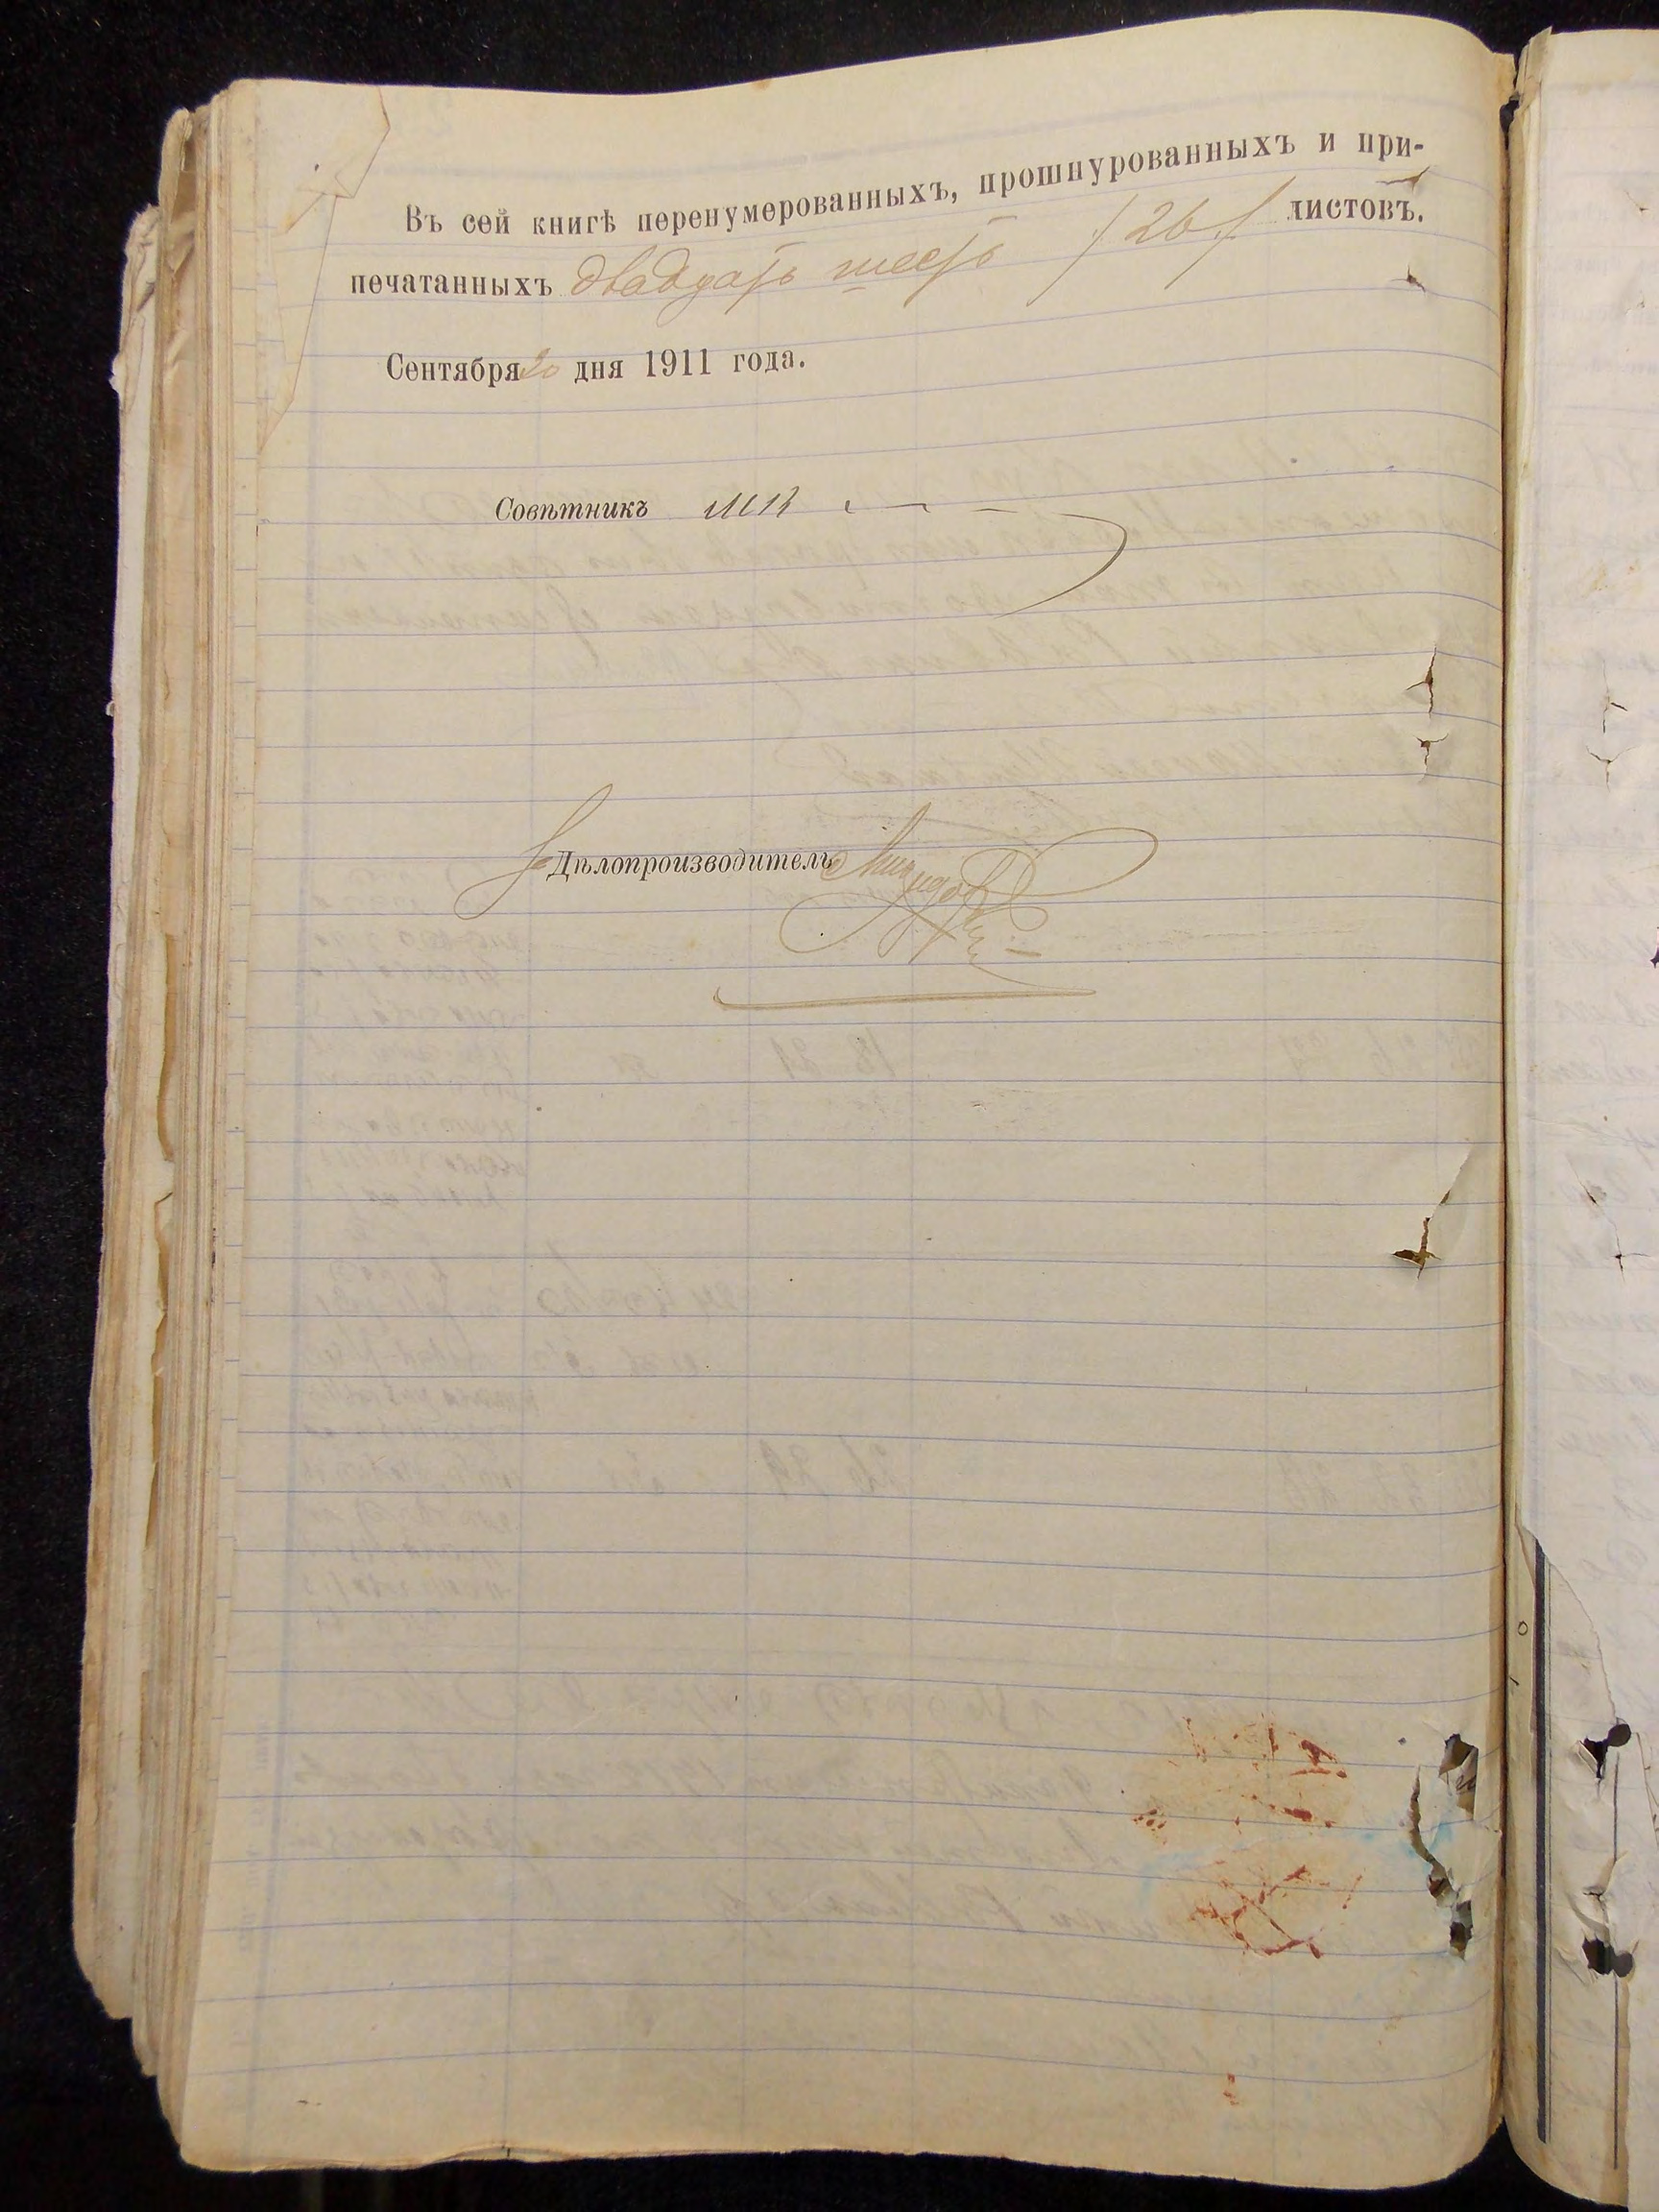 Въ сей книгѣ перенумерованныхъ, прошнурованныхъ и при-
печатанныхъ двадцать шесть /26/ листовъ.
Сентября 20 дня 1911 года.
Совѣтникъ
Дѣлопроизводитель